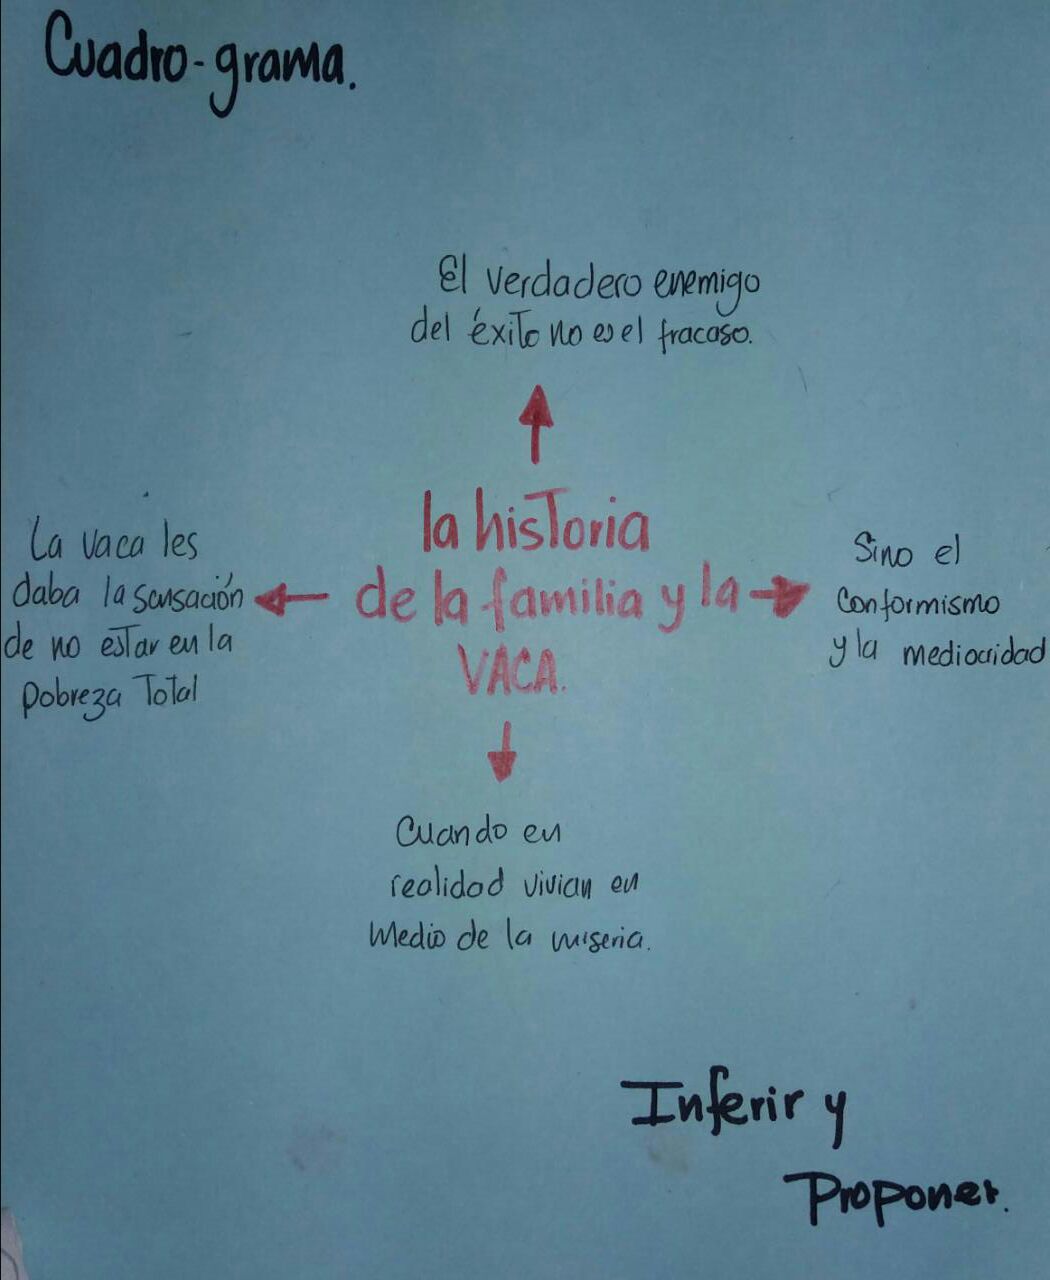 Cuadro-grama.
El verdadero enemigo
del éxito no es el fracaso.
la historia
de la familia y la
VACA.
La vaca les
daba la sensación
de no estar en la
pobreza Total
Sino el
conformismo
y la mediocridad
Cuando en
realidad vivian en
Medio de la miseria.
Inferir y
Proponer.